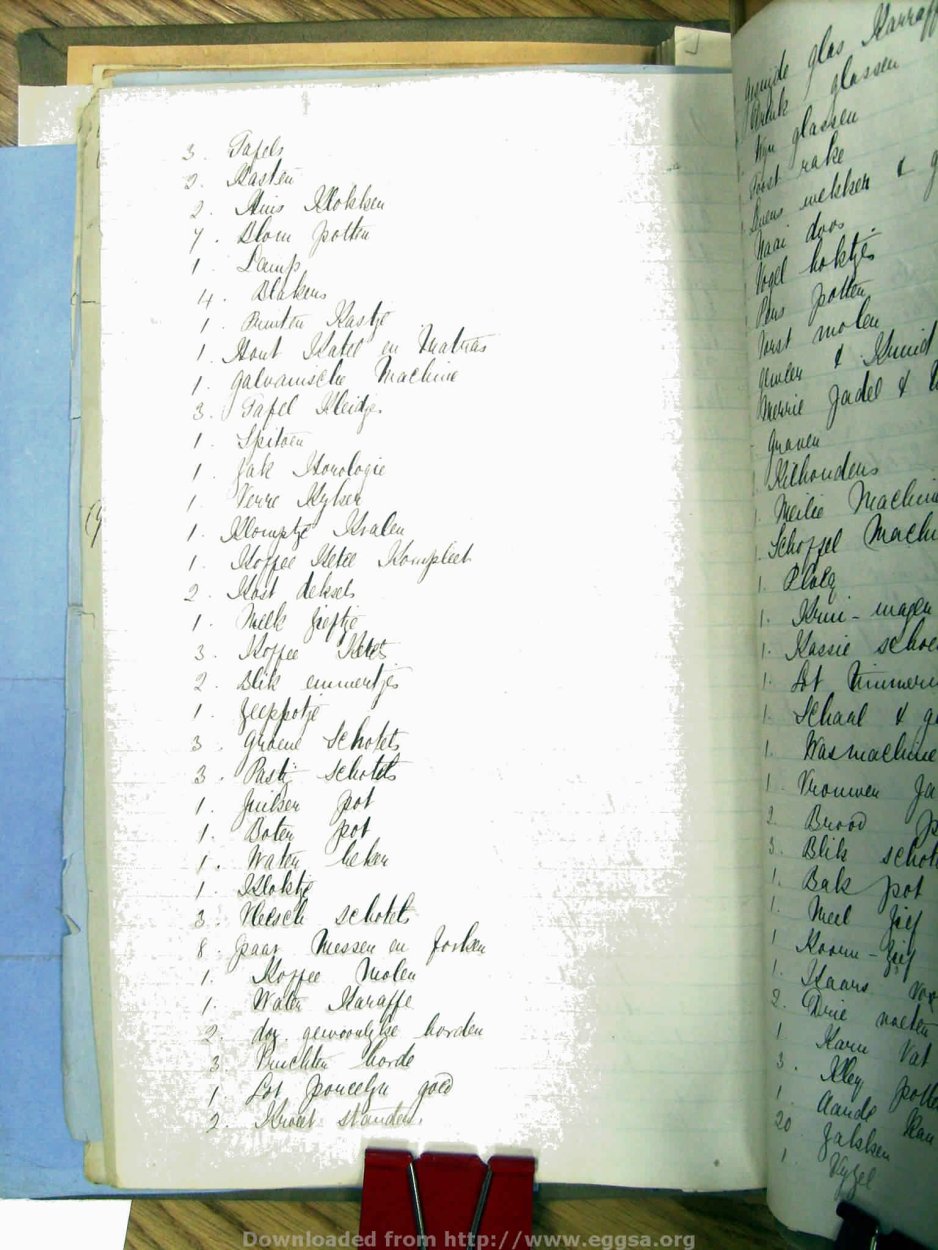 3. Tafels
2. Kasten
2. Huis Klokken
7. Blom potten
1. Lamp
4. Blakers
1. Kastje
1. Hout Katel en Matras
1. galvanische Machine
3. Tafel Kleidjes
1. Spitoen
1. Zak Horologie
1. Verre Kyker
1. Klomptje Kralen
1. Koffee Ketel Kompleet
2. Kost deksels
1. Melk Zieftje
3. Koffee Ketels
2. Blik emmertjes
1. Zeeppotje
3. groene Schotels
3. Pastij schotels
1. Suiker pot
1. Boter pot
1. Water beker
1. Klokje
3. Vleesch schotels
8. paar Messen en forken
1. Koffee Molen
1. Water Karaffe
2. doz. gewoonlyke borden
3. Vruchten borde
1. Lot Porcelyn goed
2. standers.
glas Karraff
glassen
Wyn glassen
rake
wekker &
Naai doos
Vogel hoktjes
potten
Worst molen
&
Merrie Zadel &
graven
Kilhouders
1. Meilie Machine
1. Schoffel Machi
1. Ploeg
1. Krui-wagen
1. Kassie schoe
1. Lot Timmer
1. Schaal & g
1. Wasmachine
1. Vrouwen Za
2. Brood p
3. Blik schot
1. Bak pot
1. Meel Zief
1. Koorn-Zief
1. Kaars vo
2. Drie voeten
1. Karn Vat
3. Kley potte
1. Aarde Kan
20 Zakken
1. Vyzel
Downloaded from http://www.eggsa.org